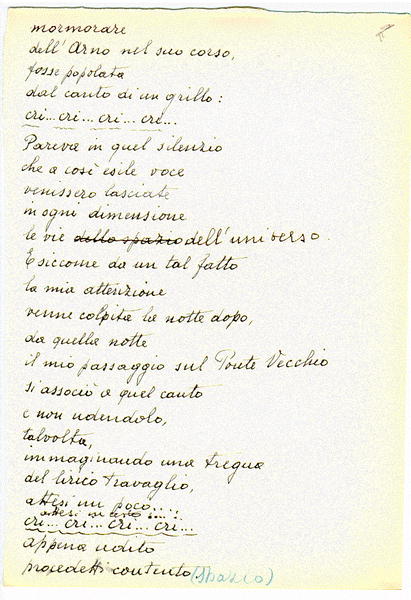 mormorare
dell'Arno nel suo corso,
fosse popolata
dal canto di un grillo:
cri... cri... cri... cri...
Pareva in quel silenzio
che a così esile voce
venissero lasciate
in ogni dimensione
le vie dello spazio dell'universo.
E siccome da un tal fatto
la mia attenzione
venne colpita la notte dopo,
da quella notte
il mio passaggio sul Ponte Vecchio
si associò a quel canto
e non udendolo,
talvolta,
immaginando una tregua
del lirico travaglio,
attesi un poco.....
attesi
cri... cri... cri... cri...
appena udito
procedetti contento. (spazio)